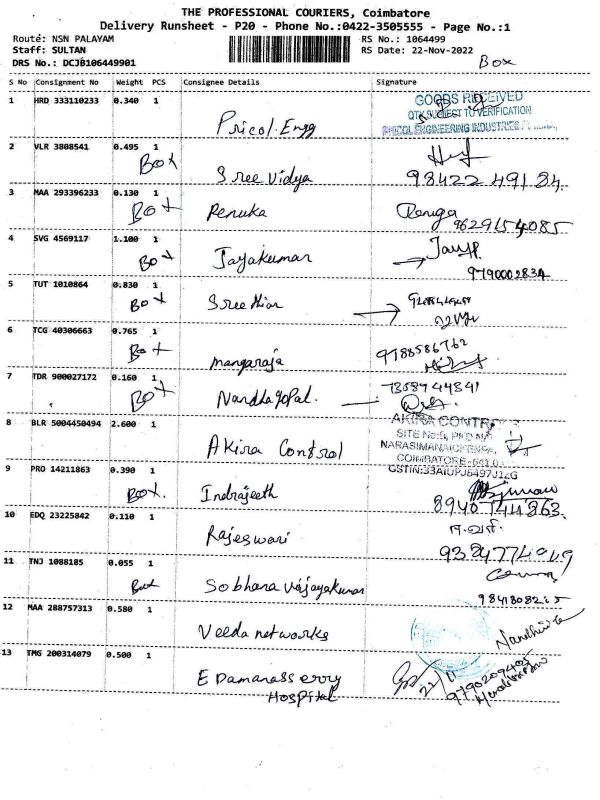 THE PROFESSIONAL COURIERS, Coimbatore
Delivery Runsheet - P20 - Phone No.:0422-3505555 - Page No.:1
Route: NSN PALAYAM RS No.: 1064499
Staff: SULTAN RS Date: 22-Nov-2022
DRS No.: DCJB106449901 Box
S No Consignment No Weight PCS Consignee Details Signature
1 HRD 333110233 0.340 1 GOODS RECEIVED
QTY SUBJECT TO VERIFICATION
Pricol. Engg PRICOL ENGINEERING INDUSTRIES
2 VLR 3808541 0.495 1
Box Sree Vidya 98422 49184
3 MAA 293396233 0.130 1
Box Renuka Renuga 9629154085
4 SVG 4569117 1.100 1
Box Jayakumar 9790002834
5 TUT 1010864 0.830 1
Box
6 TCG 40306663 0.765 1
Box mangaraja 9788586762
7 TDR 900027172 0.160 1 7358744341
Box Nandhagopal.
8 BLR 5004450494 2.600 1 AKIRA CONTR
SITE No:5,
NARASIMANAICKENPA
Akira Control COIMBATORE-641 0
9 PRO 14211863 0.390 1 GSTIN:33AIUPJ6497J1ZG
Box. Indrajeeth 8940744363
10 EDQ 23225842 0.110 1
Rajeswari 9384774049
11 TNJ 1088185 0.055 1
Box Sobhana Vijayakumar
12 MAA 288757313 0.580 1
Veeda networks
13 TMG 200314079 0.500 1
E Damanasserry 22/11 9790209405
Hospital